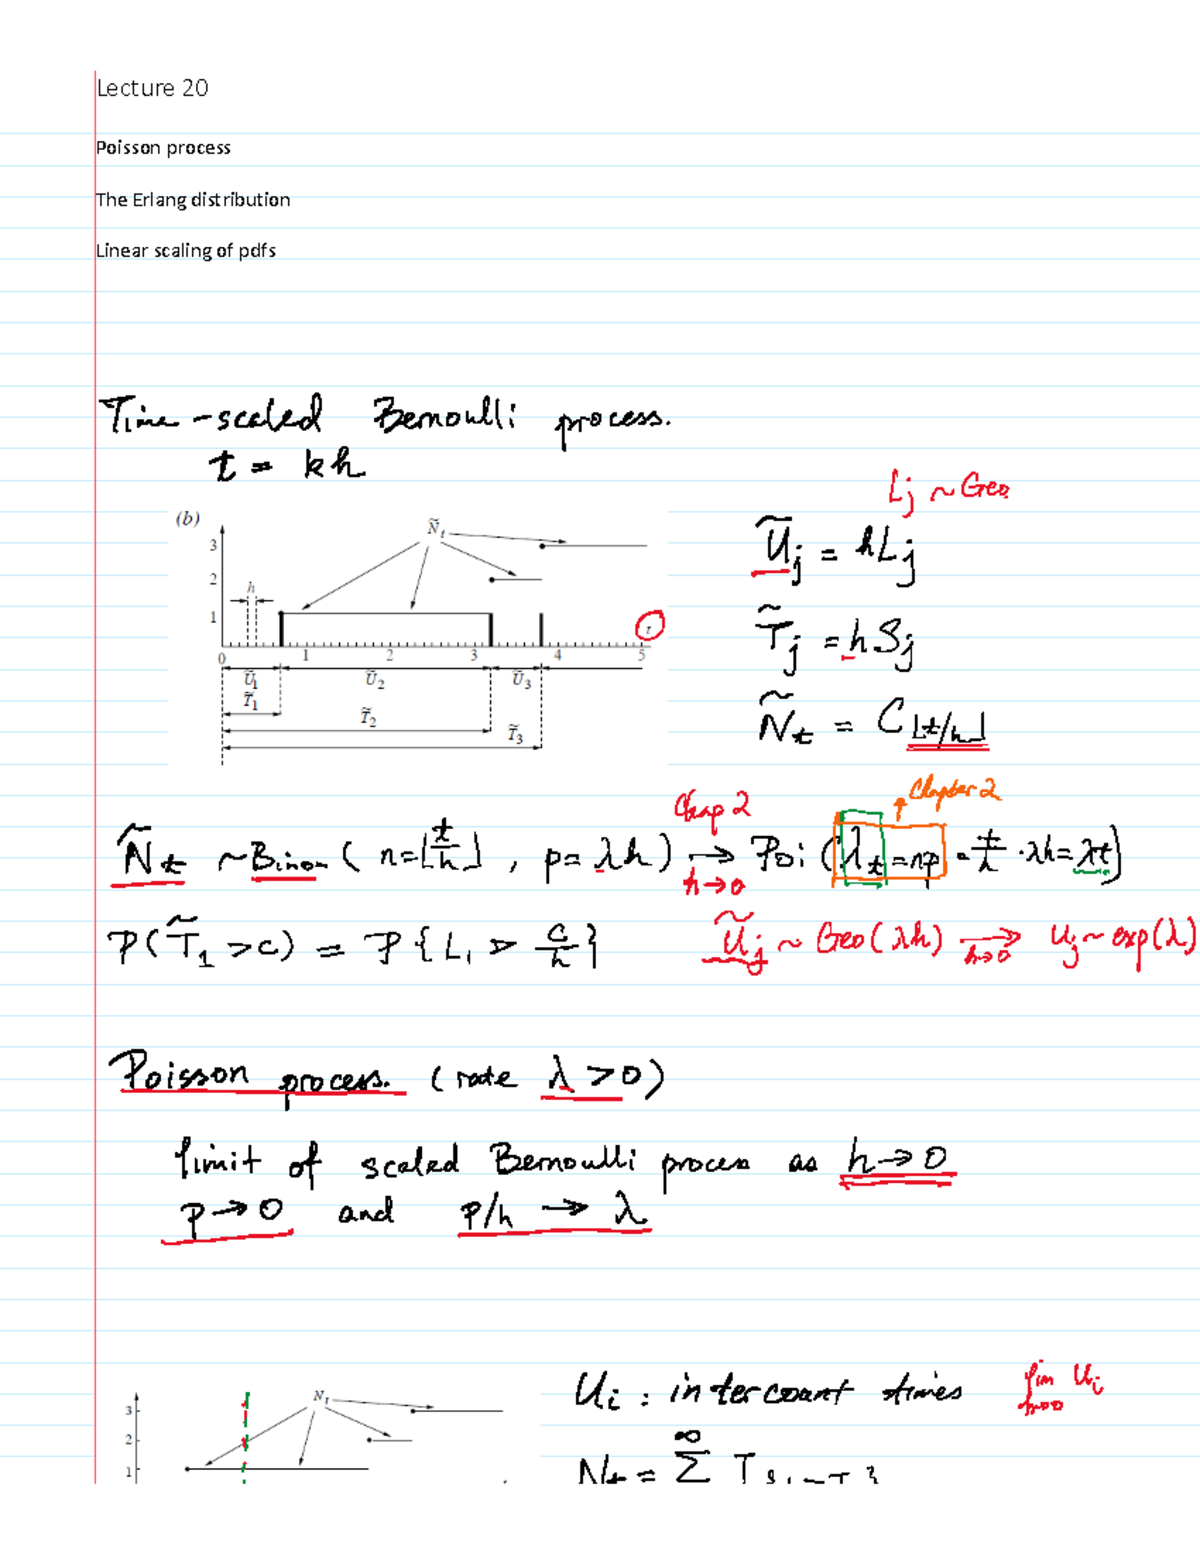 Lecture 20
Poisson process
The Erlang distribution
Linear scaling of pdfs
Time-scaled Bernoulli process.
t = kh
Lj ~ Geo
(b)
Ñt
3
2
h
1
t
0 1 2 3 4 5
Ũ1 Ũ2 Ũ3
T̃1
T̃2
T̃3
Ũj = hLj
T̃j = hSj
Ñt = C⌊t/h⌋
Chap 2
Chapter 2
Ñt ~ Binom ( n=⌊t/h⌋ , p= λh ) → Poi ( λt = np = t/h · λh = λt )
h→0
P(T̃1 > c) = P{ L1 > c/h }
Ũj ~ Geo(λh) → Uj ~ exp(λ)
h→0
Poisson process. (rate λ > 0)
limit of scaled Bernoulli process as h → 0
p → 0 and p/h → λ
Nt
3
2
1
Ui : intercount times
lim Ui
h→0
∞
Nt = Σ